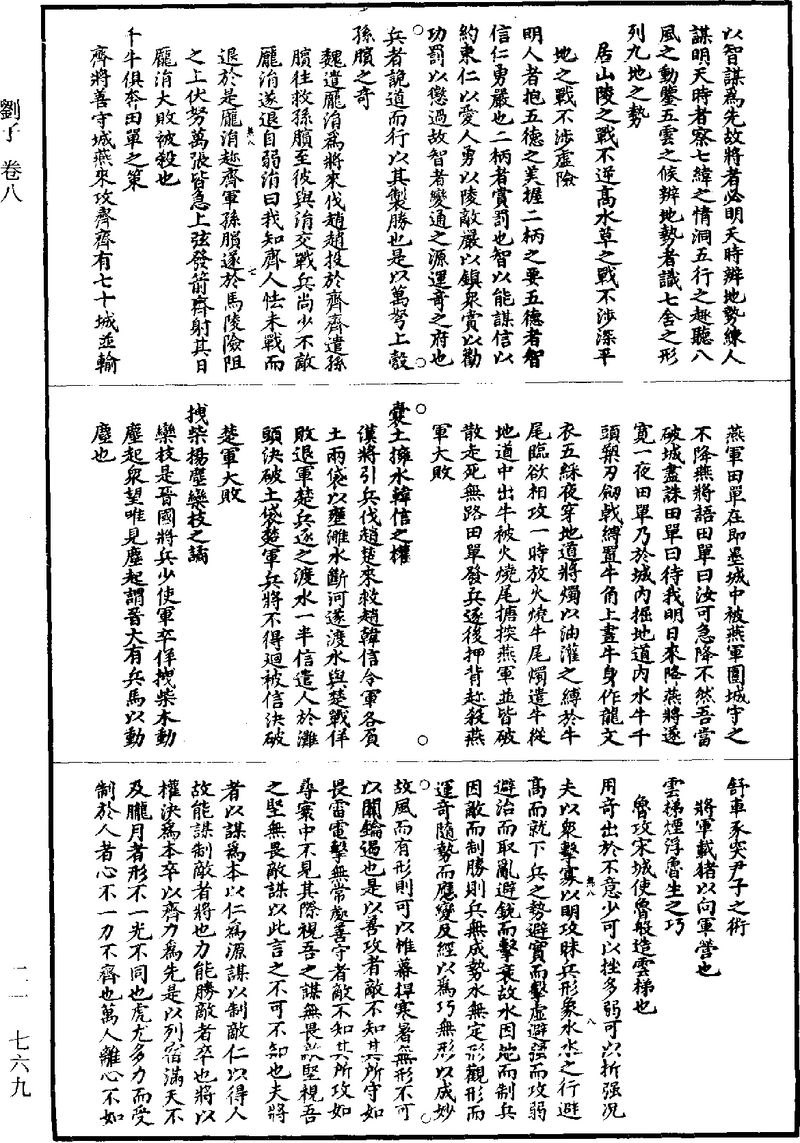 以智謀爲先故將者必明天時辨地勢練人
謀明天時者察七緯之情洞五行之趣聽八
風之動鑒五雲之候辨地勢者識七舍之形
列九地之勢
居山陵之戰不逆髙水草之戰不涉深平
地之戰不涉虛險
明人者抱五德之美握二柄之要五德者智
信仁勇嚴也二柄者賞罰也智以能謀信以
約束仁以愛人勇以陵敵嚴以鎮衆賞以勸
功罰以懲過故智者變通之源運奇之府也
兵者詭道而行以其製勝也是以萬弩上彀
孫臏之奇
魏遣龐涓爲將來伐趙趙投於齊齊遣孫
臏往救孫臏至彼與涓交戰兵尚少不敵
龐涓遂退自弱涓曰我知齊人怯未戰而
退於是龐涓趂齊軍孫臏遂於馬陵險阻
之上伏弩萬張皆急上弦發箭齊射其日
龐涓大敗被殺也
千牛俱奔田單之策
齊將善守城燕來攻齊齊有七十城並輸
燕軍田單在即墨城中被燕軍圍城守之
不降燕將語田單曰汝可急降不然吾當
破城盡誅田單曰待我明日來降燕將遂
寬一夜田單乃於城內掘地道內水牛千
頭槊刃劒戟縛置牛角上畫牛身作龍文
衣五綵夜穿地道將燭以油灌之縛於牛
尾臨欲相攻一時放火燒牛尾燭遣牛從
地道中出牛被火燒尾搪揬燕軍並皆破
散走死無路田單發兵逐後押背趂殺燕
軍大敗
囊土擁水韓信之權
漢將引兵伐趙楚來救趙韓信令軍各負
土兩袋以壅濰水斷河遂渡水與楚戰佯
敗退軍楚兵逐之渡水一半信遣人於灘
頭決破土袋楚軍兵將不得廻被信決破
楚軍大敗
拽柴揚塵欒枝之譎
欒枝是晉國將兵少使軍卒佯拽柴木動
塵起衆望唯見塵起謂晉大有兵馬以動
塵也
舒車豕突尹子之術
將軍載猪以向軍營也
雲梯煙浮魯生之巧
魯攻宋城使魯般造雲梯也
用奇出於不意少可以挫多弱可以折强況
夫以衆擊寡以明攻昧兵形象水水之行避
髙而就下兵之勢避實而擊虛避强而攻弱
避治而取亂避銳而擊衰故水因地而制兵
因敵而制勝則兵無成勢水無定形觀形而
運奇隨勢而應變反經以爲巧無形以成妙
故風而有形則可以帷幕捍寒暑無形不可
以關鑰遏也是以善攻者敵不知其所守如
畏雷電擊無常處善守者敵不知其所攻如
尋寰中不見其際視吾之謀無畏敵堅視吾
之堅無畏敵謀以此言之不可不知也夫將
者以謀爲本以仁爲源謀以制敵仁以得人
故能謀制敵者將也力能勝敵者卒也將以
權決爲本卒以齊力爲先是以列宿滿天不
及朧月者形不一光不同也虎尤多力而受
制於人者心不一力不齊也萬人離心不如
劉子 卷八
二一 七六九